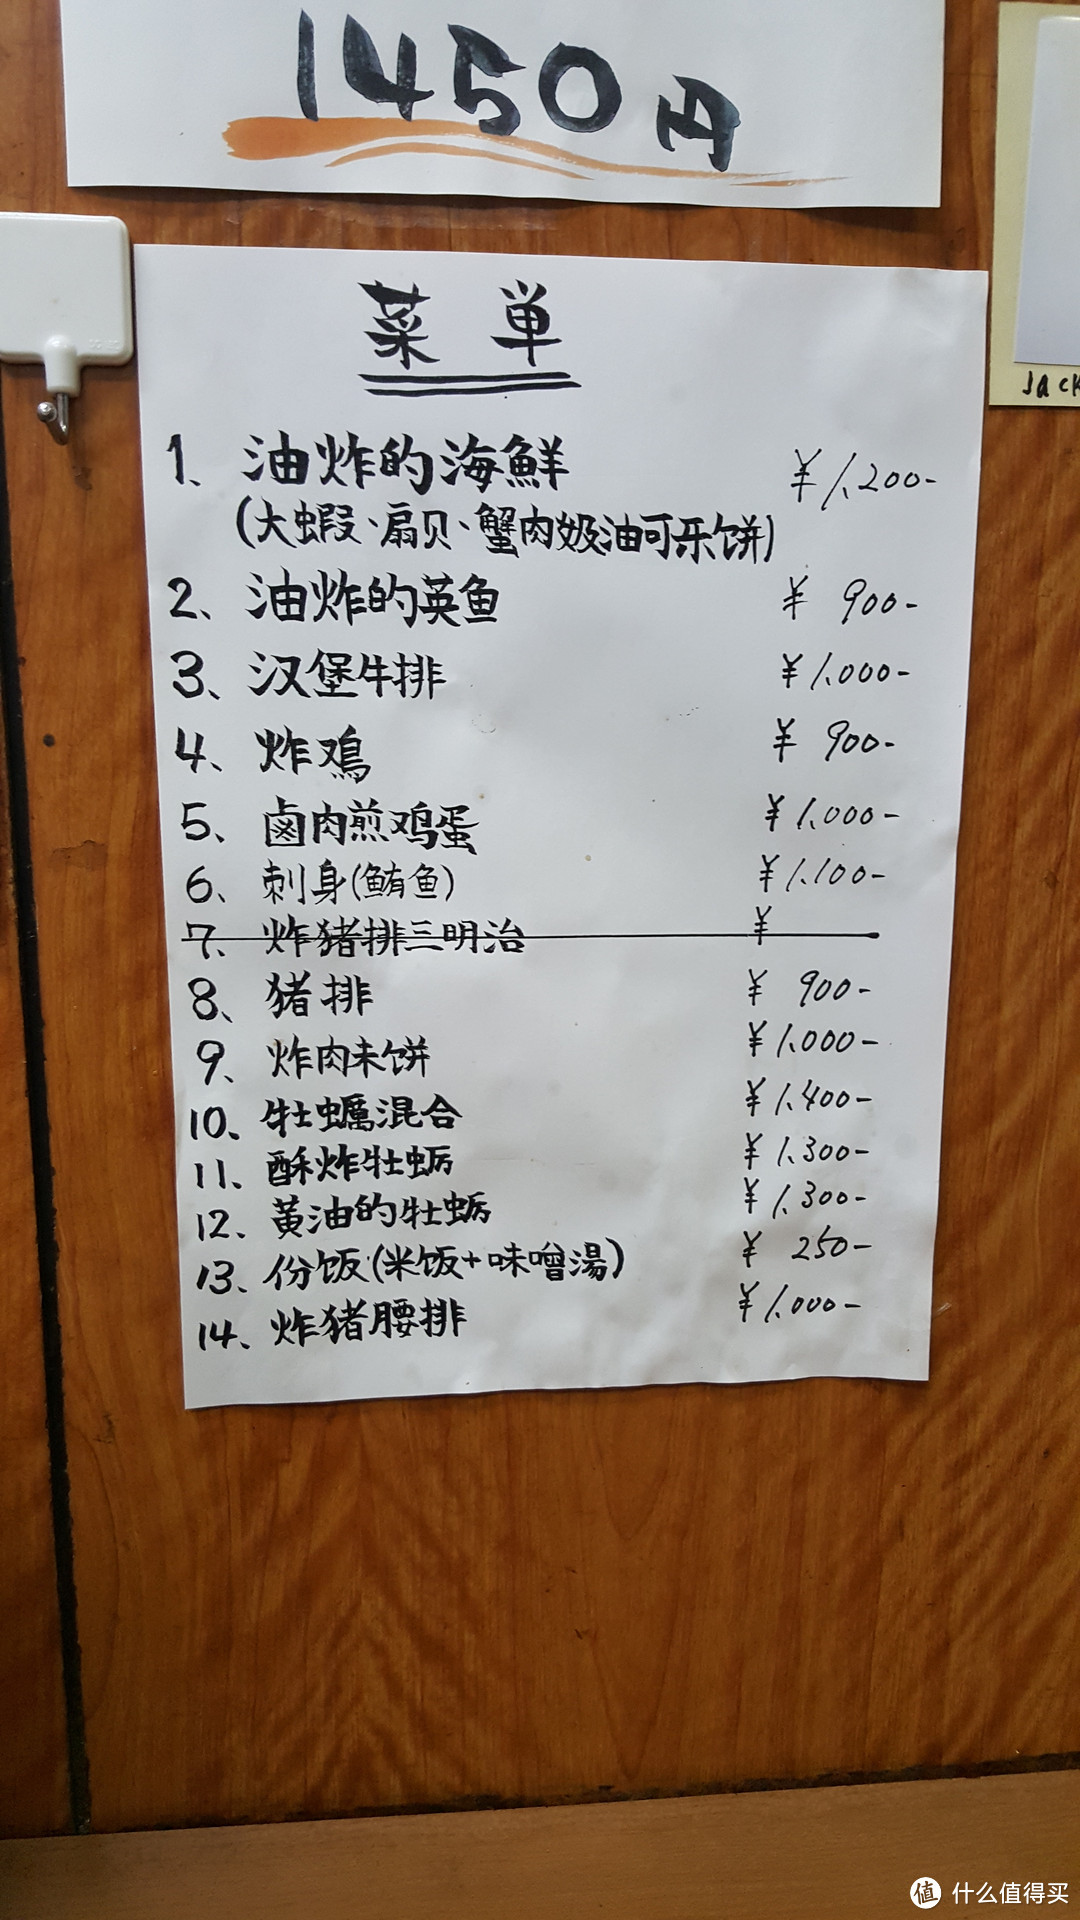 1450円
Jack
菜単
1、油炸的海鮮 ¥1,200-
(大蝦、扇贝、蟹肉奶油可乐饼)
2、油炸的英鱼 ¥900-
3、汉堡牛排 ¥1,000-
4、炸鳮 ¥900-
5、鹵肉煎鸡蛋 ¥1,000-
6、刺身(鲔鱼) ¥1,100-
7、炸猪排三明治 ¥
8、猪排 ¥900-
9、炸肉未饼 ¥1,000-
10、牡蠣混合 ¥1,400-
11、酥炸牡蛎 ¥1,300-
12、黄油的牡蛎 ¥1,300-
13、份饭(米饭+味噌湯) ¥250-
14、炸猪腰排 ¥1,000-
值 什么值得买